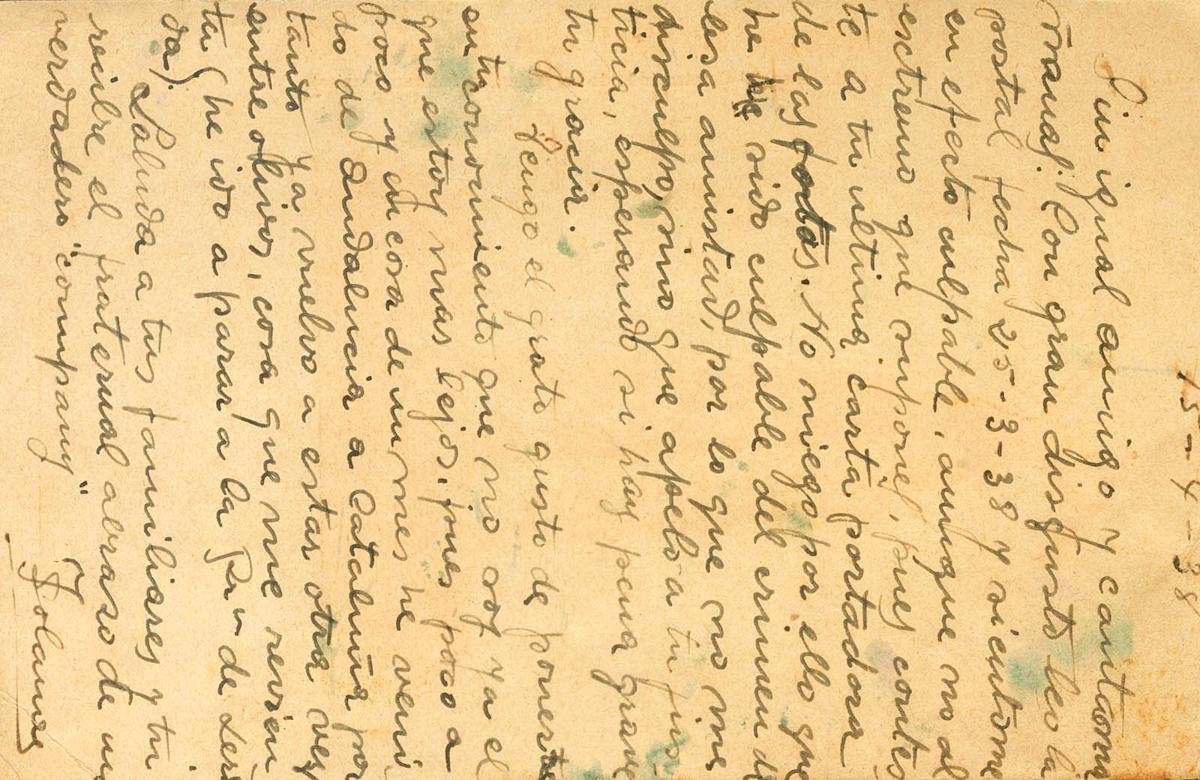 15-4-38
Sin igual amigo y cantoma
rranes: Con gran disgusto leo la
postal fecha 25-3-38 y sientome
en efecto culpable, aunque no al
extremo que supones, pues contes
te a tu ultima carta portadora
de las fotos. No niego por ello que
he sido culpable del crimen de
lesa amistad, por lo que no me
disculpo, sino que apelo a tu jus-
ticia, esperando si hay pena grave
tu gracia.
Tengo el grato gusto de ponerte
en tu conocimiento que no soy ya el
que estoy mas lejos, pues poco a
poco y en cosa de un mes he veni
do de Andalucia a Cataluña por
tanto ya vuelvo a estar otra vez
entre olivos, cosa que me revien
ta (he ido a parar a la de Leri
da).
Saluda a tus familiares y tu
recibe el fraternal abrazo de un
verdadero "company"